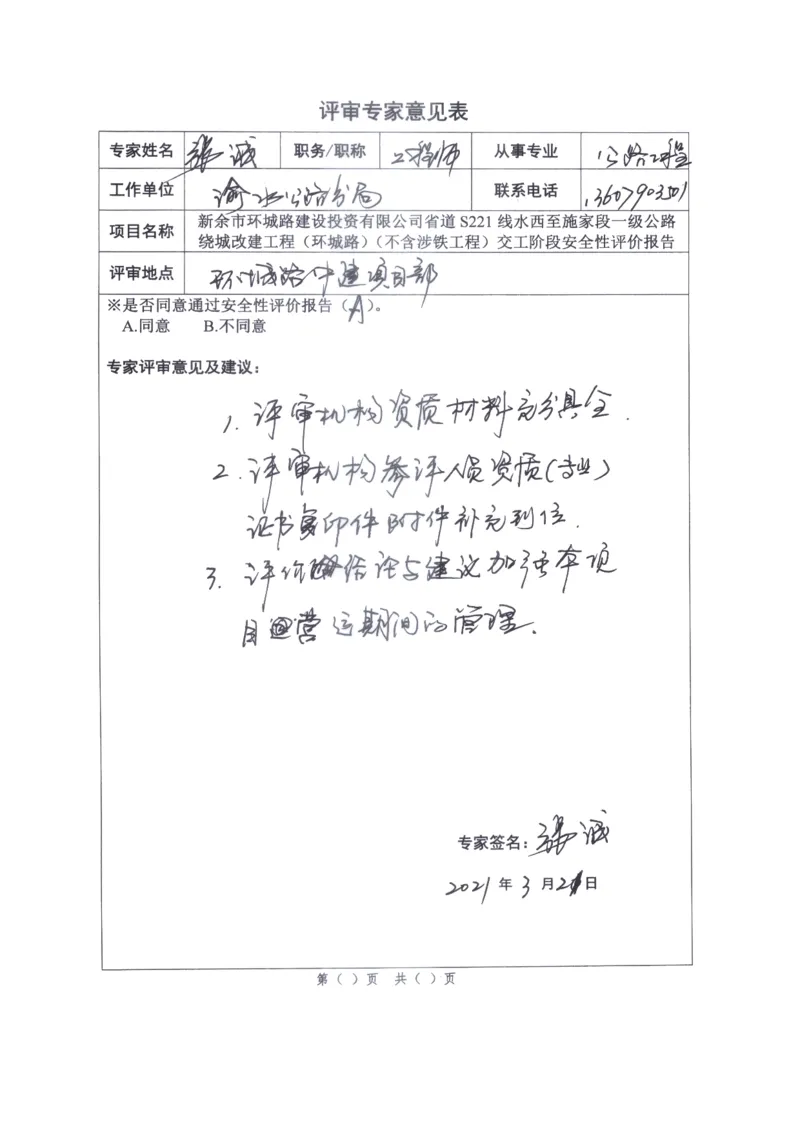 评审专家意见表
专家姓名 张诚 职务/职称 工程师 从事专业 公路工程
工作单位 渝水公路分局 联系电话 13607903501
项目名称 新余市环城路建设投资有限公司省道 S221 线水西至施家段一级公路
绕城改建工程（环城路）（不含涉铁工程）交工阶段安全性评价报告
评审地点 环城路中建项目部
※是否同意通过安全性评价报告（A）。
A.同意 B.不同意
专家评审意见及建议：
1. 评审机构资质材料充分具全.
2. 评审机构参评人员资质(专业)
证书复印件附件补充到位.
3. 评价结论与建议加强本项
目运营 期间的管理.
专家签名：张诚
2021 年 3 月 21 日
第（ ）页 共（ ）页